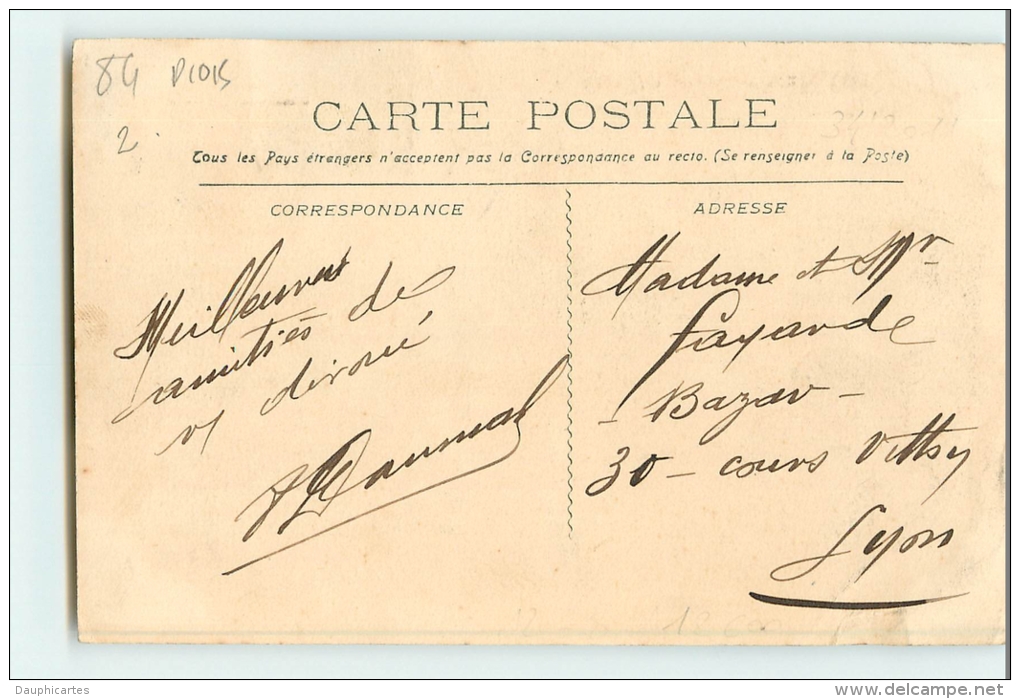 84
2
CARTE POSTALE
Tous les Pays étrangers n'acceptent pas la Correspondance au recto. (Se renseigner à la Poste)
CORRESPONDANCE
Meilleures
amitiés de
vt dévoué
ADRESSE
Madame et Mr
Fayarde
- Bazar -
30 - cours Vitthy
Lyon
Dauphicartes
www.delcampe.net